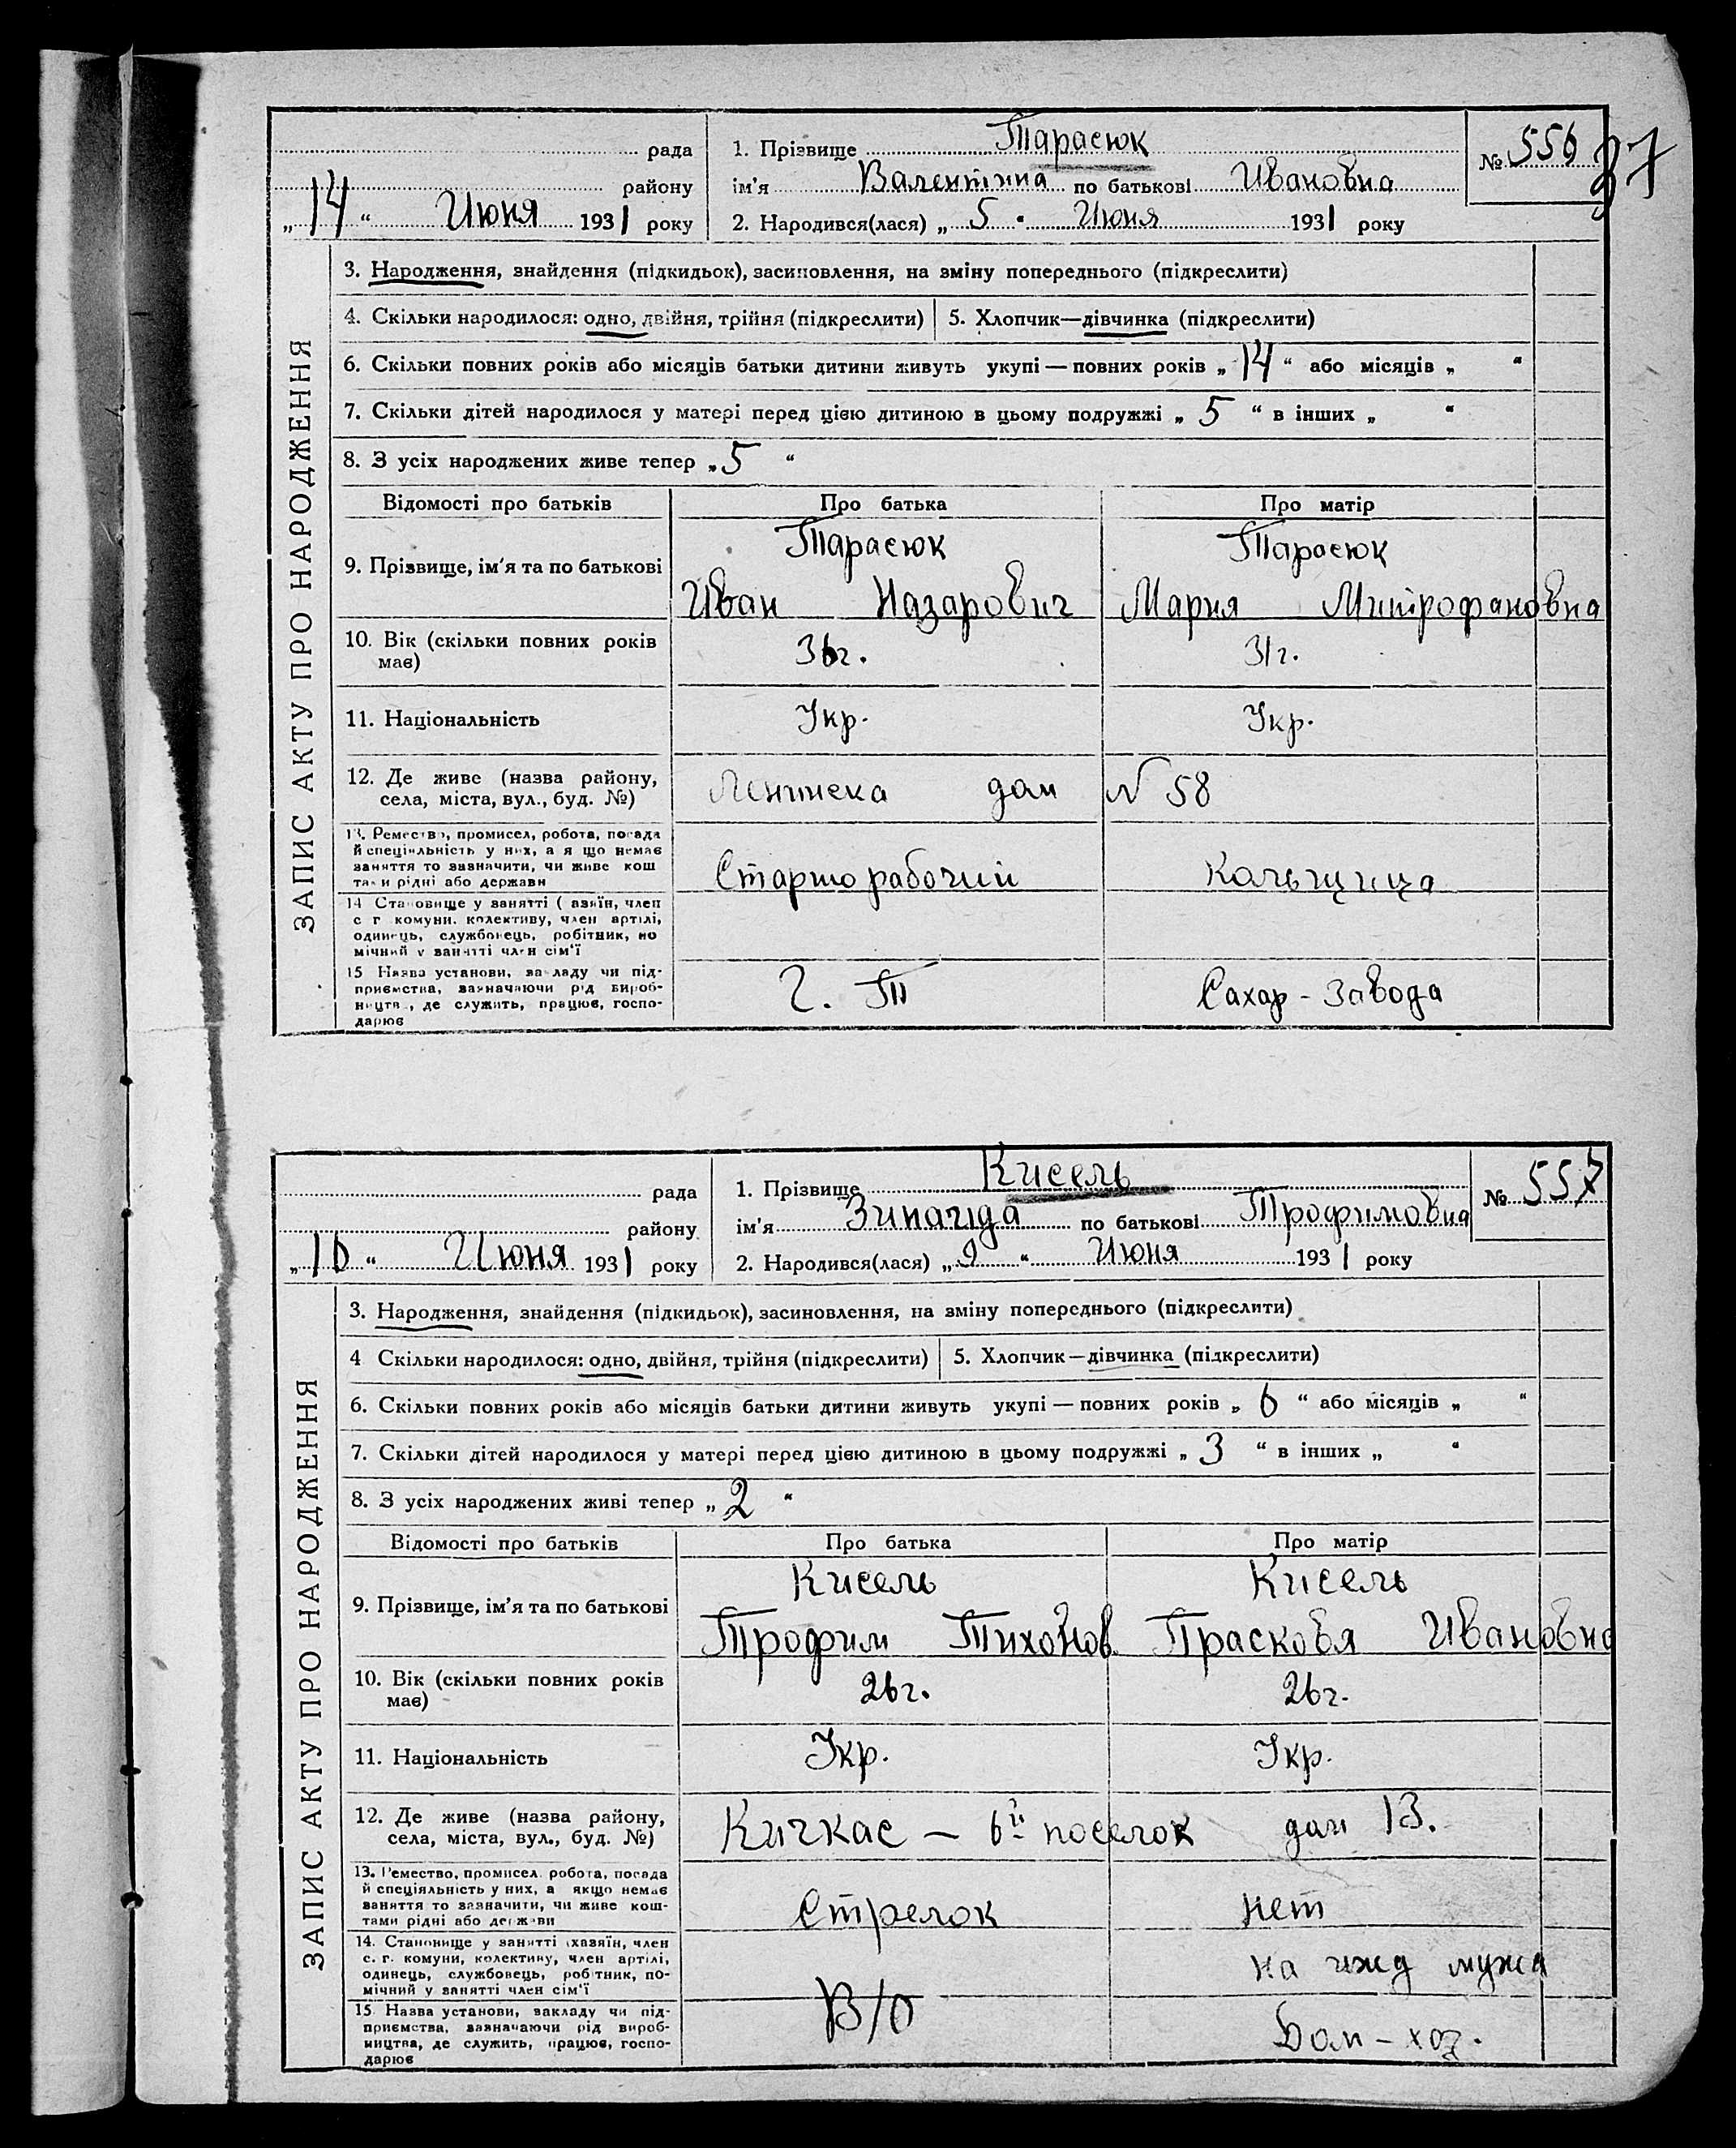 37
рада
району
„14“ Июня 1931 року
1. Прізвище Тарасюк
№ 556
ім'я Валентина по батькові Ивановна
2. Народився(лася) „5“ Июня 1931 року
ЗАПИС АКТУ ПРО НАРОДЖЕННЯ
3. Народження, знайдення (підкидьок), засиновлення, на зміну попереднього (підкреслити)
4. Скільки народилося: одно, двійня, трійня (підкреслити)
5. Хлопчик—дівчинка (підкреслити)
6. Скільки повних років або місяців батьки дитини живуть укупі — повних років „14“ або місяців „ “
7. Скільки дітей народилося у матері перед цією дитиною в цьому подружжі „5“ в інших „ “
8. З усіх народжених живе тепер „5“
Відомості про батьків
Про батька
Про матір
9. Прізвище, ім'я та по батькові
Тарасюк
Иван Назарович
Тарасюк
Мария Митрофановна
10. Вік (скільки повних років
має)
36г.
31г.
11. Національність
Укр.
Укр.
12. Де живе (назва району,
села, міста, вул., буд. №)
Ленинска дом N 58
13. Ремество, промисел, робота, посада
й спеціяльність у них, а якщо немає
заняття то зазначити, чи живе кош
тами рідні або держави
Старшо рабочий
14 Становище у занятті (хазяїн, член
с г комуни, колективу, член артілі,
одинець, службовець, робітник, по
мічний у занятті член сім'ї
15 Назва установи, закладу чи під-
приємства, зазначаючи рід вироб-
ництва, де служить, працює, госпо-
дарює
Г. Т
Сахар - Завода
рада
району
„16“ Июня 1931 року
1. Прізвище Кисель
№ 557
ім'я Зинаида по батькові Трофимовна
2. Народився(лася) „9“ Июня 1931 року
ЗАПИС АКТУ ПРО НАРОДЖЕННЯ
3. Народження, знайдення (підкидьок), засиновлення, на зміну попереднього (підкреслити)
4 Скільки народилося: одно, двійня, трійня (підкреслити)
5. Хлопчик—дівчинка (підкреслити)
6. Скільки повних років або місяців батьки дитини живуть укупі — повних років „6“ або місяців „ “
7. Скільки дітей народилося у матері перед цією дитиною в цьому подружжі „3“ в інших „ “
8. З усіх народжених живі тепер „2“
Відомості про батьків
Про батька
Про матір
9. Прізвище, ім'я та по батькові
Кисель
Трофим Тихонов
Кисель
Прасковя Ивановна
10. Вік (скільки повних років
має)
26г.
26г.
11. Національність
Укр.
Укр.
12. Де живе (назва району,
села, міста, вул., буд. №)
Кичкас — 6й поселок дом 13.
13. Ремество, промисел, робота, посада
й спеціяльність у них, а якщо немає
заняття то зазначити, чи живе кош-
тами рідні або держави
Стрелок
нет
14. Становище у занятті (хазяїн, член
с. г. комуни, колективу, член артілі,
одинець, службовець, робітник, по-
мічний у занятті член сім'ї
на ижд мужа
15. Назва установи, закладу чи під-
приємства, зазначаючи рід вироб-
ництва, де служить, працює, госпо-
дарює
В/О
Дом - хоз.